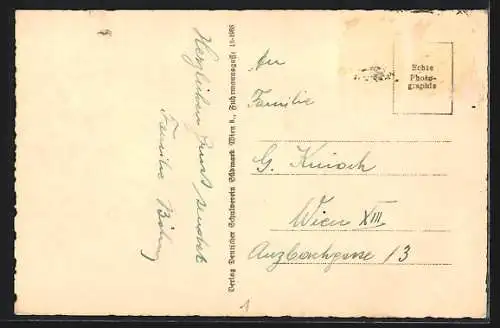 Herzlichen Gruß sendet
Familie
Verlag Deutscher Schulverein Südmark Wien 8., Fuhrmannsgasse 18-1988
Echte
Photo-
graphie
An
Familie
G.
Wien XIII
Anzbachgasse 13
1